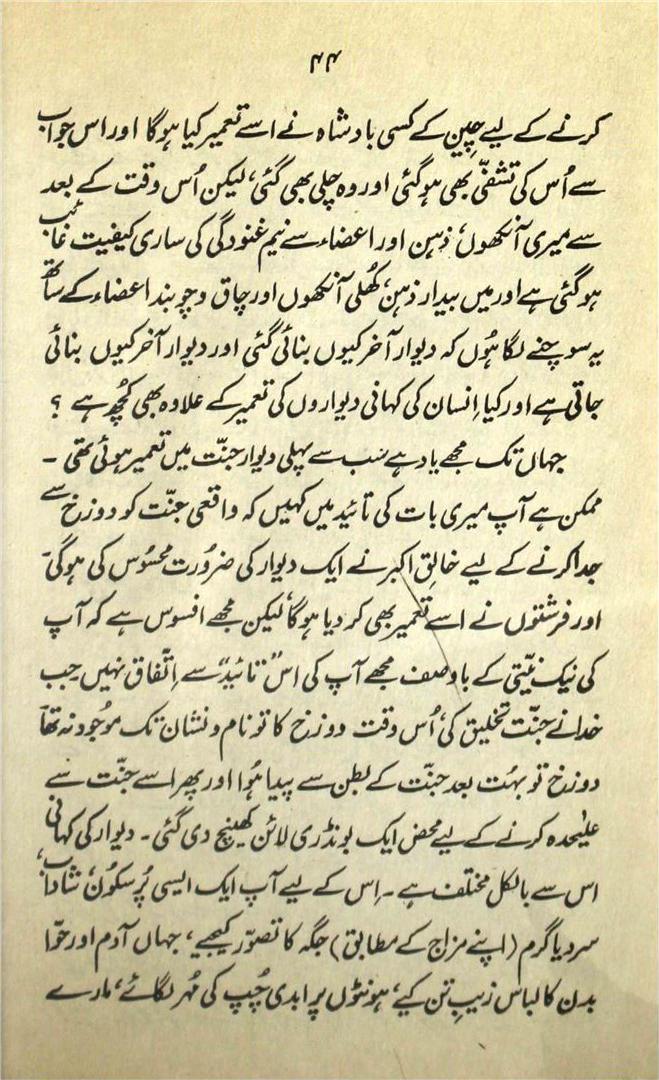 ۴۴
کرنے کے لیے چین کے کسی بادشاہ نے اسے تعمیر کیا ہوگا اور اس جواب
سے اُس کی تشفّی بھی ہوگئی اور وہ چلی بھی گئی، لیکن اُس وقت کے بعد
سے میری آنکھوں، ذہن اور اعضاء سے نیم غنودگی کی ساری کیفیت غائب
ہوگئی ہے اور میں بیدار ذہن، کُھلی آنکھوں اور چاق و چوبند اعضاء کے ساتھ
یہ سوچنے لگا ہُوں کہ دیوار آخر کیوں بنائی گئی اور دیوار آخر کیوں بنائی
جاتی ہے اور کیا اِنسان کی کہانی دیواروں کی تعمیر کے علاوہ بھی کُچھ ہے ؟
جہاں تک مجھے یاد ہے سَب سے پہلی دیوار جنّت میں تعمیر ہوئی تھی ۔
ممکن ہے آپ میری بات کی تائید میں کہیں کہ واقعی جنّت کو دوزخ سے
جدا کرنے کے لیے خالقِ اکبر نے ایک دیوار کی ضرُورت محسُوس کی ہوگی
اور فرشتوں نے اسے تعمیر بھی کر دیا ہوگا، لیکن مجھے افسوس ہے کہ آپ
کی نیک نیّتی کے باوصف مجھے آپ کی اس "تائید" سے اِتّفاق نہیں جب
خدا نے جنّت تخلیق کی، اُس وقت دوزخ کا تو نام و نشان تک موجُود نہ تھا
دوزخ تو بہُت بعد جنّت کے بطن سے پیدا ہُوا اور پھر اسے جنّت سے
علیٰحدہ کرنے کے لیے محض ایک بونڈری لائن کھینچ دی گئی ۔ دیوار کی کہانی
اس سے بالکل مختلف ہے ۔ اِس کے لیے آپ ایک ایسی پُر سکُون، شاداب،
سرد یا گرم (اپنے مزاج کے مطابق) جگہ کا تصوّر کیجیے، جہاں آدم اور حوّا
بدن کا لباس زیبِ تن کیے، ہونٹوں پر ابدی چُپ کی مُہر لگائے، مارے